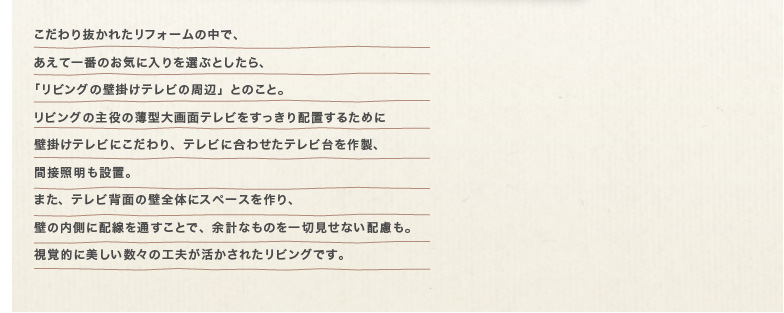 こだわり抜かれたリフォームの中で、
あえて一番のお気に入りを選ぶとしたら、
「リビングの壁掛けテレビの周辺」とのこと。
リビングの主役の薄型大画面テレビをすっきり配置するために
壁掛けテレビにこだわり、テレビに合わせたテレビ台を作製、
間接照明も設置。
また、テレビ背面の壁全体にスペースを作り、
壁の内側に配線を通すことで、余計なものを一切見せない配慮も。
視覚的に美しい数々の工夫が活かされたリビングです。